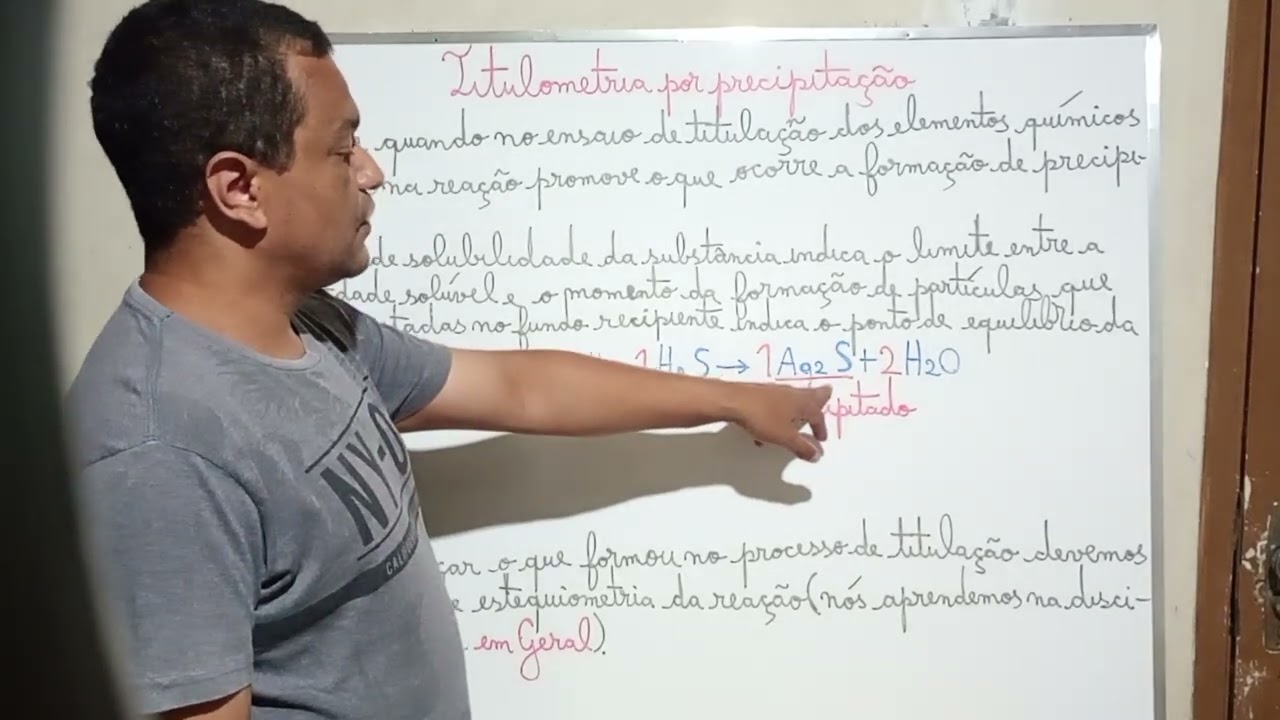 Titulometria por precipitação
quando no ensaio de titulação dos elementos químicos
ma reação promove o que ocorre a formação de precipi-
de solubilidade da substância indica o limite entre a
dade solúvel e o momento da formação de partículas que
tadas no fundo recipiente indica o ponto de equilíbrio da
1H2S → 1Ag2S + 2H2O
ipitado
car o que formou no processo de titulação devemos
e estequiometria da reação (nós aprendemos na disci-
em Geral).
NY-